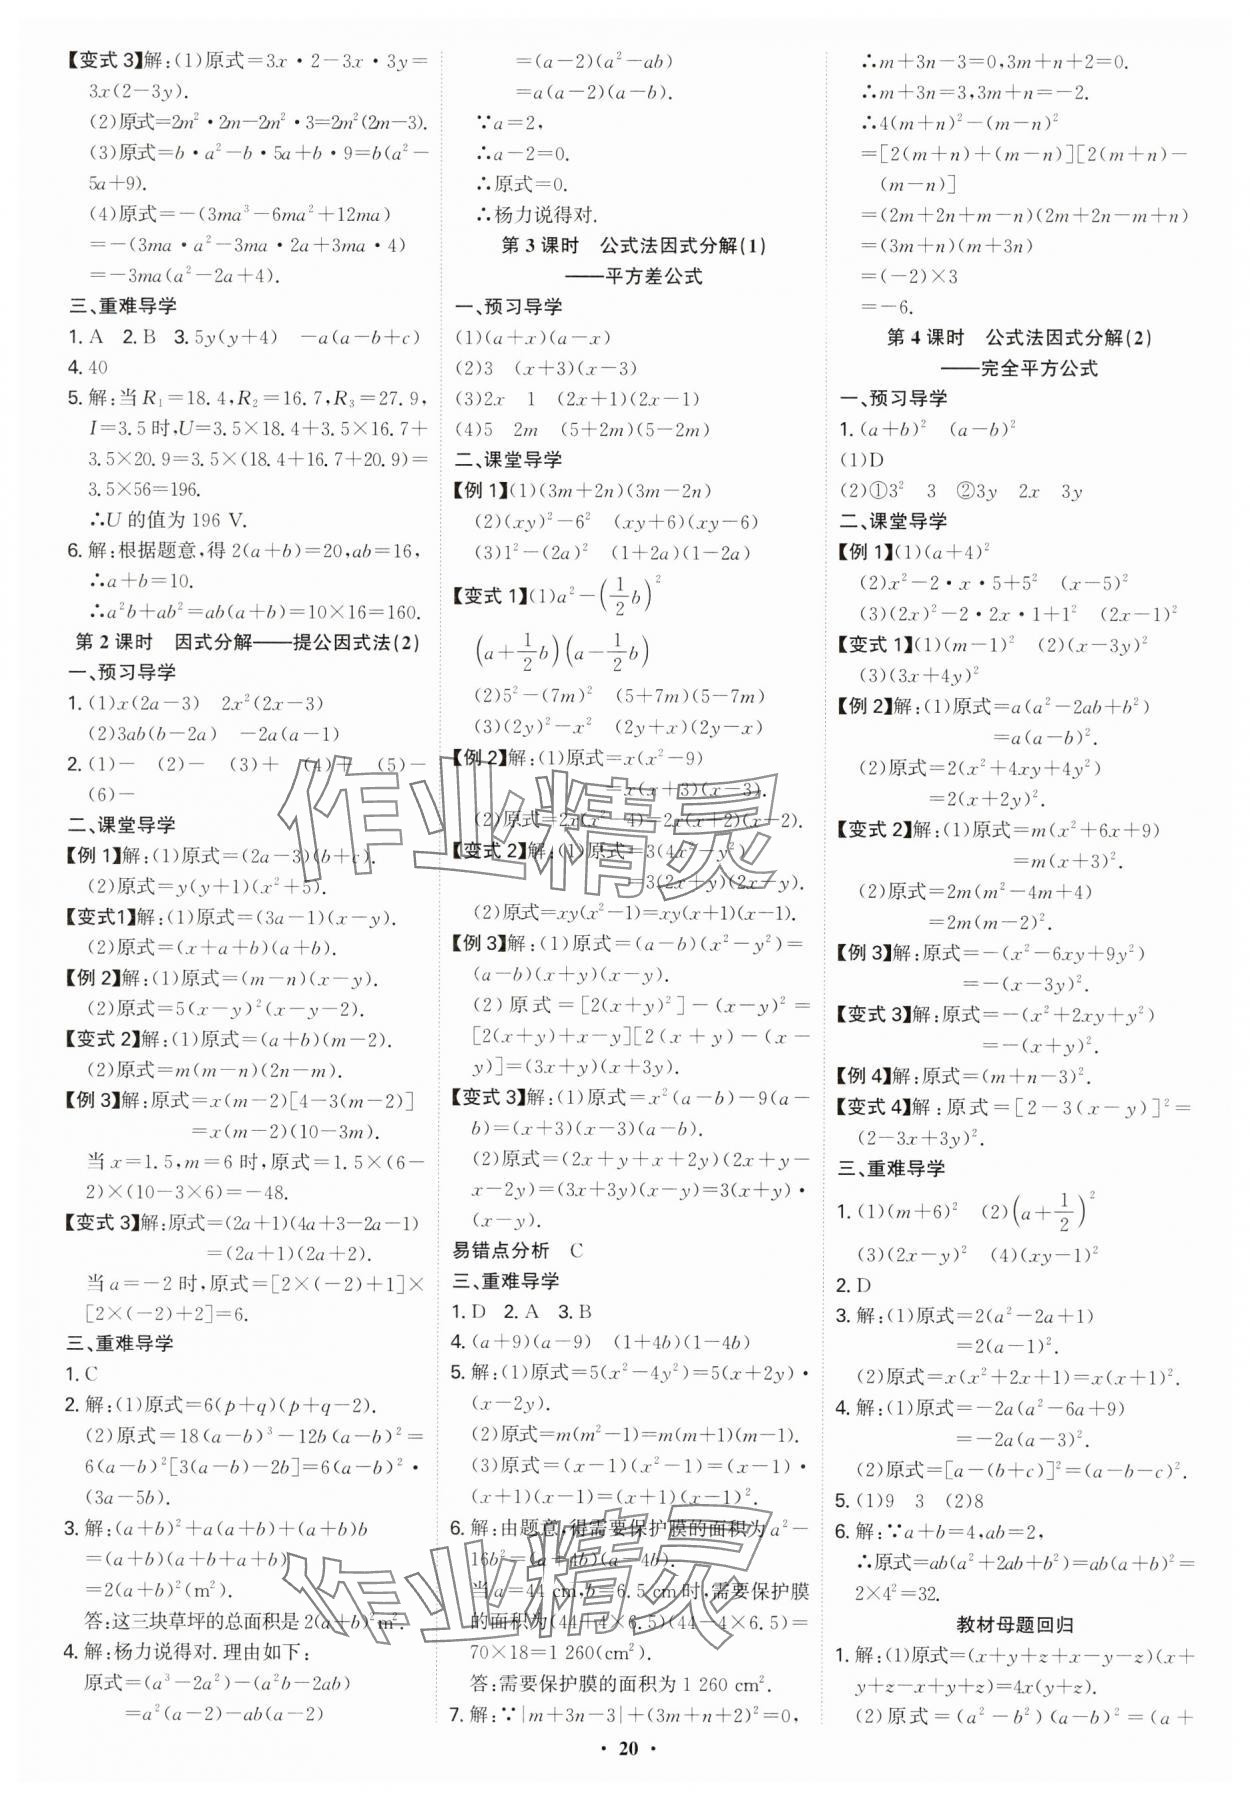 【变式 3】解:(1)原式=3x・2-3x・3y=
3x(2-3y).
(2)原式=2m²・2m-2m²・3=2m²(2m-3).
(3)原式=b・a²-b・5a+b・9=b(a²-
5a+9).
(4)原式=-(3ma³-6ma²+12ma)
=-(3ma・a²-3ma・2a+3ma・4)
=-3ma(a²-2a+4).
三、重难导学
1. A 2. B 3. 5y(y+4) -a(a-b+c)
4. 40
5. 解:当 R₁=18.4,R₂=16.7,R₃=27.9,
I=3.5 时,U=3.5×18.4+3.5×16.7+
3.5×20.9=3.5×(18.4+16.7+20.9)=
3.5×56=196.
∴U 的值为 196 V.
6. 解:根据题意,得 2(a+b)=20,ab=16,
∴a+b=10.
∴a²b+ab²=ab(a+b)=10×16=160.
第 2 课时 因式分解——提公因式法(2)
一、预习导学
1. (1)x(2a-3) 2x²(2x-3)
(2)3ab(b-2a) -2a(a-1)
2. (1)- (2)- (3)+ (4)+ (5)-
(6)-
二、课堂导学
【例 1】解:(1)原式=(2a-3)(b+c).
(2)原式=y(y+1)(x²+5).
【变式1】解:(1)原式=(3a-1)(x-y).
(2)原式=(x+a+b)(a+b).
【例 2】解:(1)原式=(m-n)(x-y).
(2)原式=5(x-y)²(x-y-2).
【变式 2】解:(1)原式=(a+b)(m-2).
(2)原式=m(m-n)(2n-m).
【例 3】解:原式=x(m-2)[4-3(m-2)]
=x(m-2)(10-3m).
当 x=1.5,m=6 时,原式=1.5×(6-
2)×(10-3×6)=-48.
【变式 3】解:原式=(2a+1)(4a+3-2a-1)
=(2a+1)(2a+2).
当 a=-2 时,原式=[2×(-2)+1]×
[2×(-2)+2]=6.
三、重难导学
1. C
2. 解:(1)原式=6(p+q)(p+q-2).
(2)原式=18(a-b)³-12b(a-b)²=
6(a-b)²[3(a-b)-2b]=6(a-b)²・
(3a-5b).
3. 解:(a+b)²+a(a+b)+(a+b)b
=(a+b)(a+b+a+b)
=2(a+b)²(m²).
答:这三块草坪的总面积是 2(a+b)² m².
4. 解:杨力说得对. 理由如下:
原式=(a³-2a²)-(a²b-2ab)
=a²(a-2)-ab(a-2)
=(a-2)(a²-ab)
=a(a-2)(a-b).
∵a=2,
∴a-2=0.
∴原式=0.
∴杨力说得对.
第 3 课时 公式法因式分解(1)
——平方差公式
一、预习导学
(1)(a+x)(a-x)
(2)3 (x+3)(x-3)
(3)2x 1 (2x+1)(2x-1)
(4)5 2m (5+2m)(5-2m)
二、课堂导学
【例 1】(1)(3m+2n)(3m-2n)
(2)(xy)²-6² (xy+6)(xy-6)
(3)1²-(2a)² (1+2a)(1-2a)
【变式 1】(1)a²-(1/2 b)²
(a+1/2 b)(a-1/2 b)
(2)5²-(7m)² (5+7m)(5-7m)
(3)(2y)²-x² (2y+x)(2y-x)
【例 2】解:(1)原式=x(x²-9)
=x(x+3)(x-3).
(2)原式=2x(x²-4)=2x(x+2)(x-2).
【变式 2】解:(1)原式=3(4x²-y²)
=3(2x+y)(2x-y).
(2)原式=xy(x²-1)=xy(x+1)(x-1).
【例 3】解:(1)原式=(a-b)(x²-y²)=
(a-b)(x+y)(x-y).
(2)原式=[2(x+y)²]-(x-y)²=
[2(x+y)+x-y][2(x+y)-(x-
y)]=(3x+y)(x+3y).
【变式 3】解:(1)原式=x²(a-b)-9(a-
b)=(x+3)(x-3)(a-b).
(2)原式=(2x+y+x+2y)(2x+y-
x-2y)=(3x+3y)(x-y)=3(x+y)・
(x-y).
易错点分析 C
三、重难导学
1. D 2. A 3. B
4. (a+9)(a-9) (1+4b)(1-4b)
5. 解:(1)原式=5(x²-4y²)=5(x+2y)・
(x-2y).
(2)原式=m(m²-1)=m(m+1)(m-1).
(3)原式=(x-1)(x²-1)=(x-1)・
(x+1)(x-1)=(x+1)(x-1)².
6. 解:由题意,得需要保护膜的面积为 a²-
16b²=(a+4b)(a-4b).
当 a=44 cm,b=6.5 cm 时,需要保护膜
的面积为(44+4×6.5)(44-4×6.5)=
70×18=1 260(cm²).
答:需要保护膜的面积为 1 260 cm².
7. 解:∵|m+3n-3|+(3m+n+2)²=0,
∴m+3n-3=0,3m+n+2=0.
∴m+3n=3,3m+n=-2.
∴4(m+n)²-(m-n)²
=[2(m+n)+(m-n)][2(m+n)-
(m-n)]
=(2m+2n+m-n)(2m+2n-m+n)
=(3m+n)(m+3n)
=(-2)×3
=-6.
第 4 课时 公式法因式分解(2)
——完全平方公式
一、预习导学
1. (a+b)² (a-b)²
(1)D
(2)①3² 3 ②3y 2x 3y
二、课堂导学
【例 1】(1)(a+4)²
(2)x²-2・x・5+5² (x-5)²
(3)(2x)²-2・2x・1+1² (2x-1)²
【变式 1】(1)(m-1)² (2)(x-3y)²
(3)(3x+4y)²
【例 2】解:(1)原式=a(a²-2ab+b²)
=a(a-b)².
(2)原式=2(x²+4xy+4y²)
=2(x+2y)².
【变式 2】解:(1)原式=m(x²+6x+9)
=m(x+3)².
(2)原式=2m(m²-4m+4)
=2m(m-2)².
【例 3】解:原式=-(x²-6xy+9y²)
=-(x-3y)².
【变式 3】解:原式=-(x²+2xy+y²)
=-(x+y)².
【例 4】解:原式=(m+n-3)².
【变式 4】解:原式=[2-3(x-y)]²=
(2-3x+3y)².
三、重难导学
1. (1)(m+6)² (2)(a+1/2)²
(3)(2x-y)² (4)(xy-1)²
2. D
3. 解:(1)原式=2(a²-2a+1)
=2(a-1)².
(2)原式=x(x²+2x+1)=x(x+1)².
4. 解:(1)原式=-2a(a²-6a+9)
=-2a(a-3)².
(2)原式=[a-(b+c)]²=(a-b-c)².
5. (1)9 3 (2)8
6. 解:∵a+b=4,ab=2,
∴原式=ab(a²+2ab+b²)=ab(a+b)²=
2×4²=32.
教材母题回归
1. 解:(1)原式=(x+y+z+x-y-z)(x+
y+z-x+y+z)=4x(y+z).
(2)原式=(a²-b²)(a-b)²=(a+
・20・
作业精灵
作业精灵